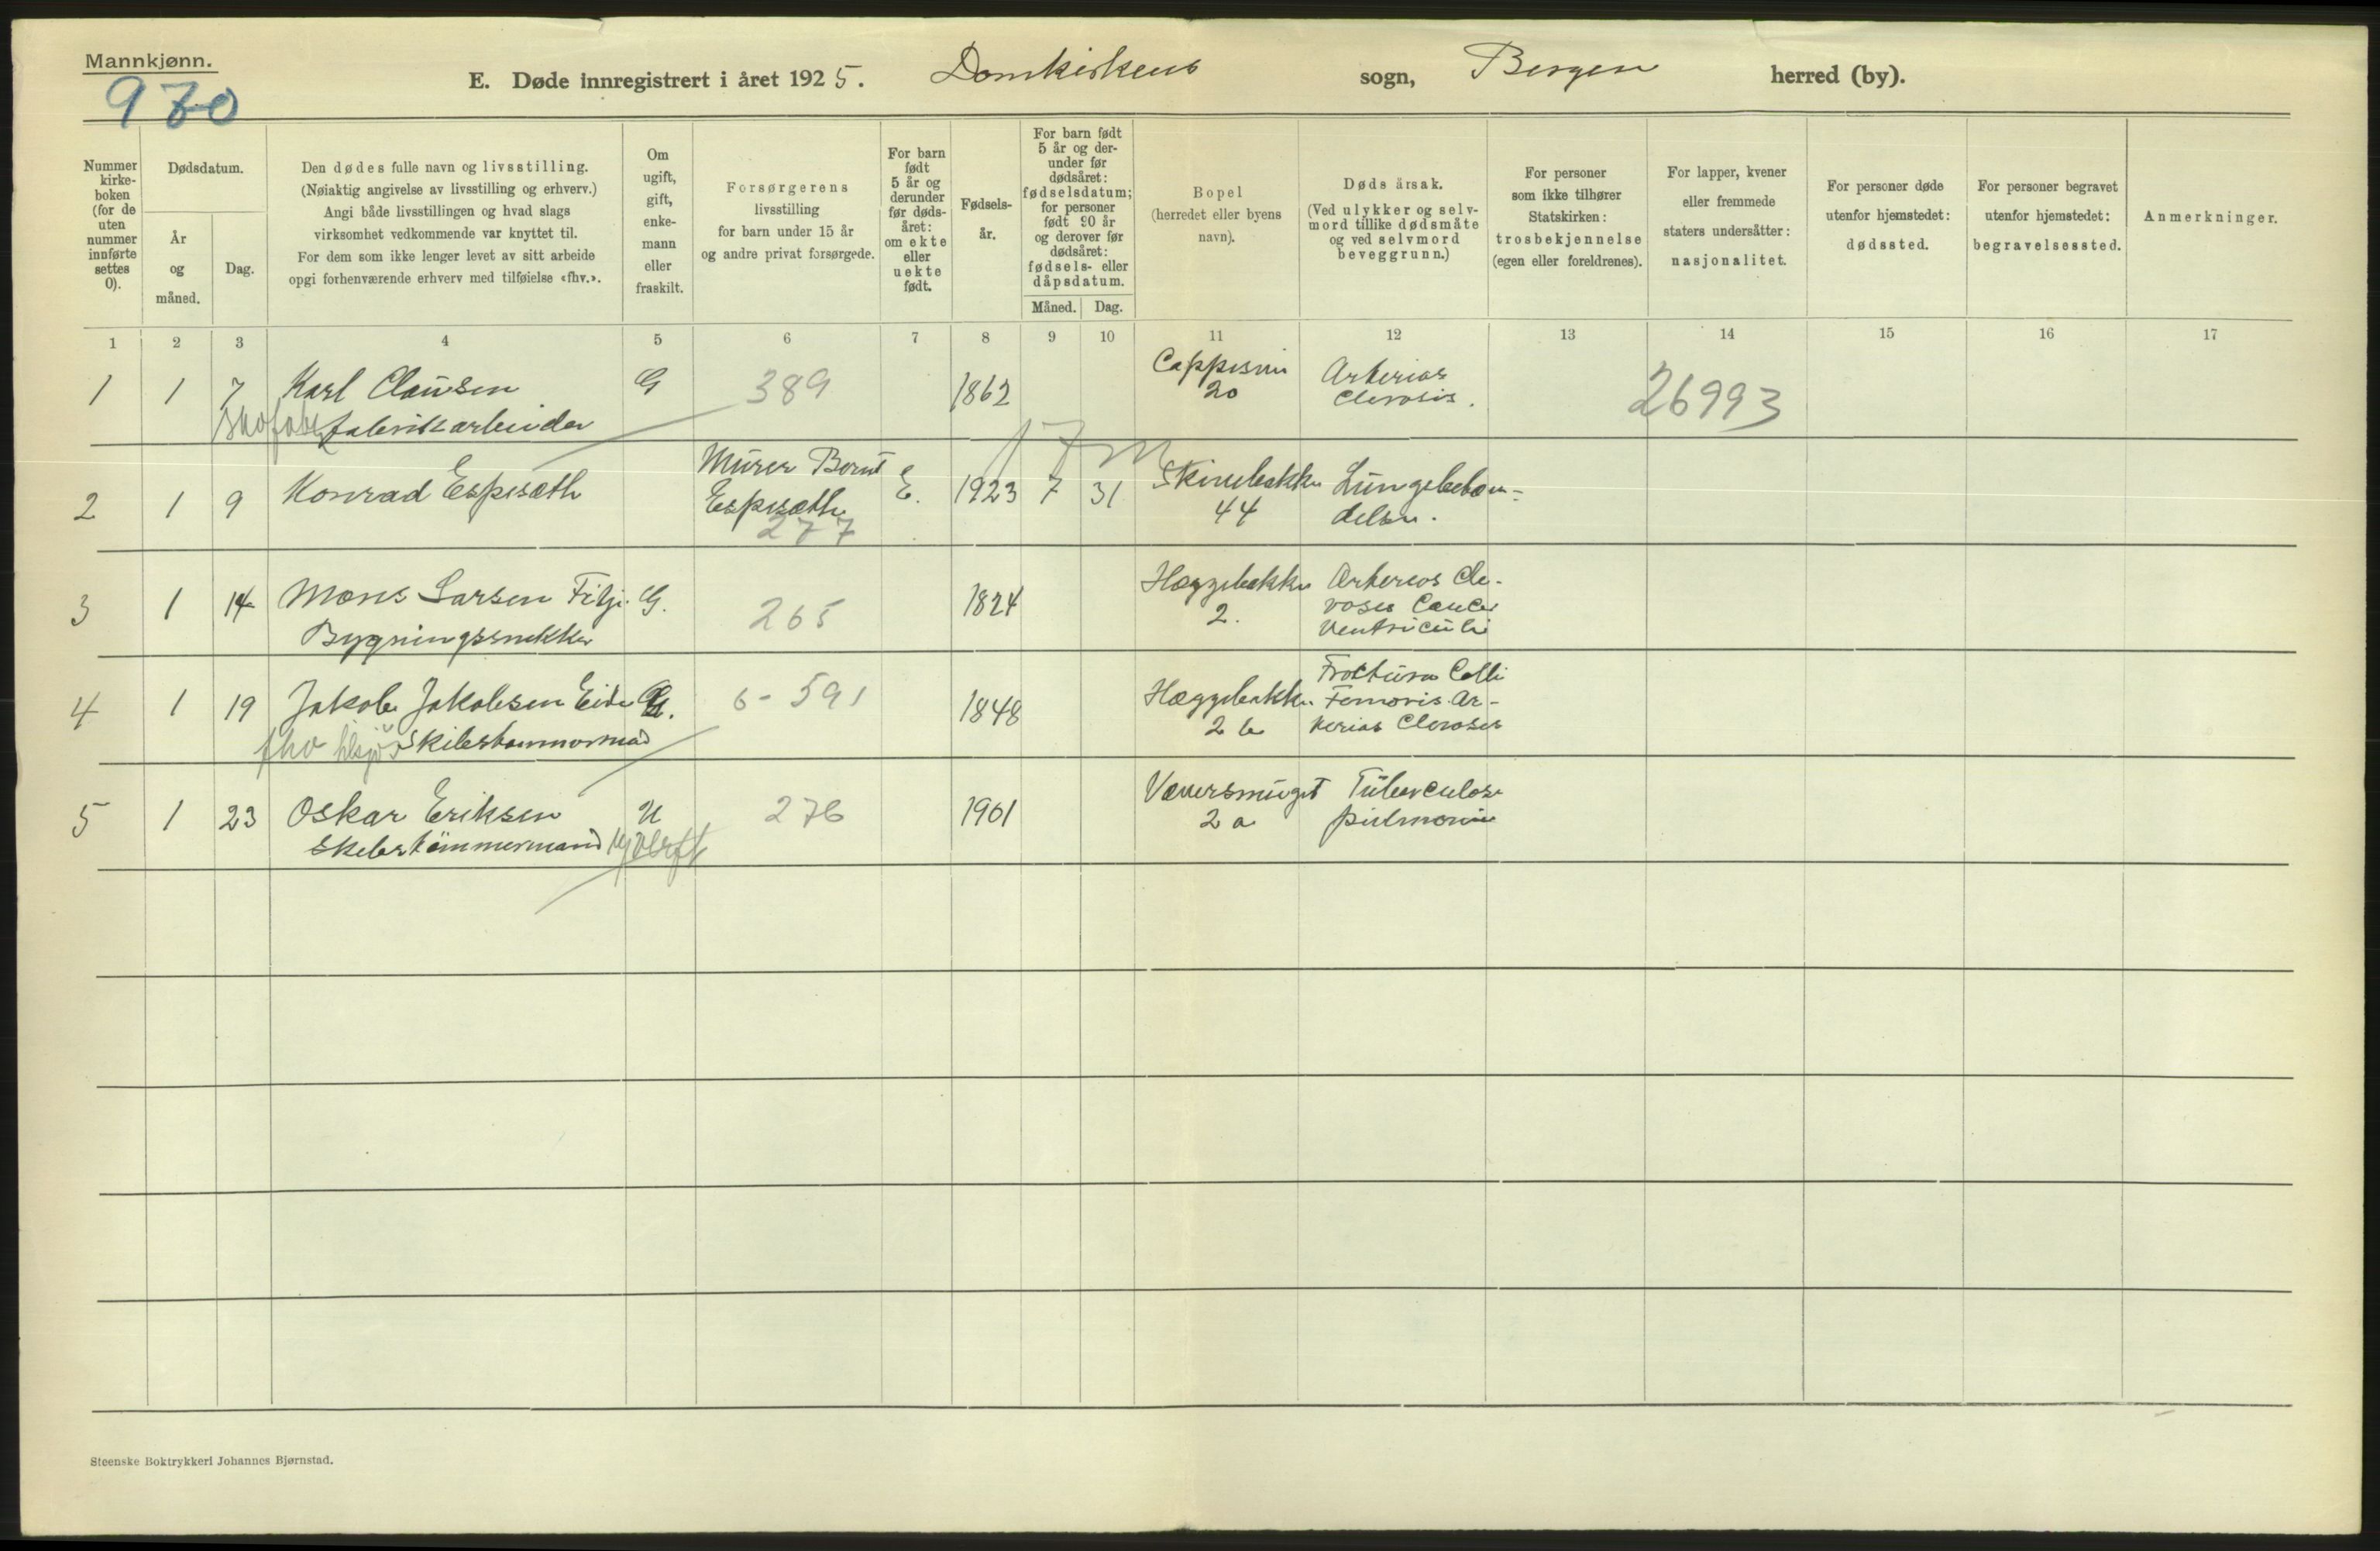 Mannkjønn.
970
E. Døde innregistrert i året 1925. Domkirkens sogn, Bergen herred (by).
Nummer
kirke-
boken
(for de
uten
nummer
innførte
settes
0).
Dødsdatum.
År
og
måned.
Dag.
Den dødes fulle navn og livsstilling.
(Nøiaktig angivelse av livsstilling og erhverv.)
Angi både livsstillingen og hvad slags
virksomhet vedkommende var knyttet til.
For dem som ikke lenger levet av sitt arbeide
opgi forhenværende erhverv med tilføielse «fhv.».
Om
ugift,
gift,
enke-
mann
eller
fraskilt.
Forsørgerens
livsstilling
for barn under 15 år
og andre privat forsørgede.
For barn
født
5 år og
derunder
før døds-
året:
om ekte
eller
uekte
født.
Fødsels-
år.
For barn født
5 år og der-
under før
dødsåret:
fødselsdatum;
for personer
født 90 år
og derover før
dødsåret:
fødsels- eller
dåpsdatum.
Måned. Dag.
Bopel
(herredet eller byens
navn).
Døds årsak.
(Ved ulykker og selv-
mord tillike dødsmåte
og ved selvmord
beveggrunn.)
For personer
som ikke tilhører
Statskirken:
trosbekjennelse
(egen eller foreldrenes).
For lapper, kvener
eller fremmede
staters undersåtter:
nasjonalitet.
For personer døde
utenfor hjemstedet:
dødssted.
For personer begravet
utenfor hjemstedet:
begravelsessted.
Anmerkninger.
1 2 3 4 5 6 7 8 9 10 11 12 13 14 15 16 17
1 1 7 Karl Clausen G 389 1862 Cappesmi Arterios 26993
fabrikarbeider 20 Clerosis.
2 1 9 Konrad Espesæth Murer Bernt E. 1923 7 31 Skivebakken Lungebeten-
Espesæth 44 delse.
277
3 1 14 Mons Larsen Fitje G. 265 1824 Hæggebakken Arterios Cle-
Bygningssnekker 2. roses Cancer
Ventriculi
4 1 19 Jakob Jakobsen Eide G. 6-591 1848 Hæggebakken Fractura Colli
Skibstømmermand 2 b Femoris. Ar-
terios Cleroses
5 1 23 Oskar Eriksen U 276 1901 Væversmuget Tuberculose
Skibstømmermand 2 a pulmonis
Steenske Boktrykkeri Johannes Bjørnstad.